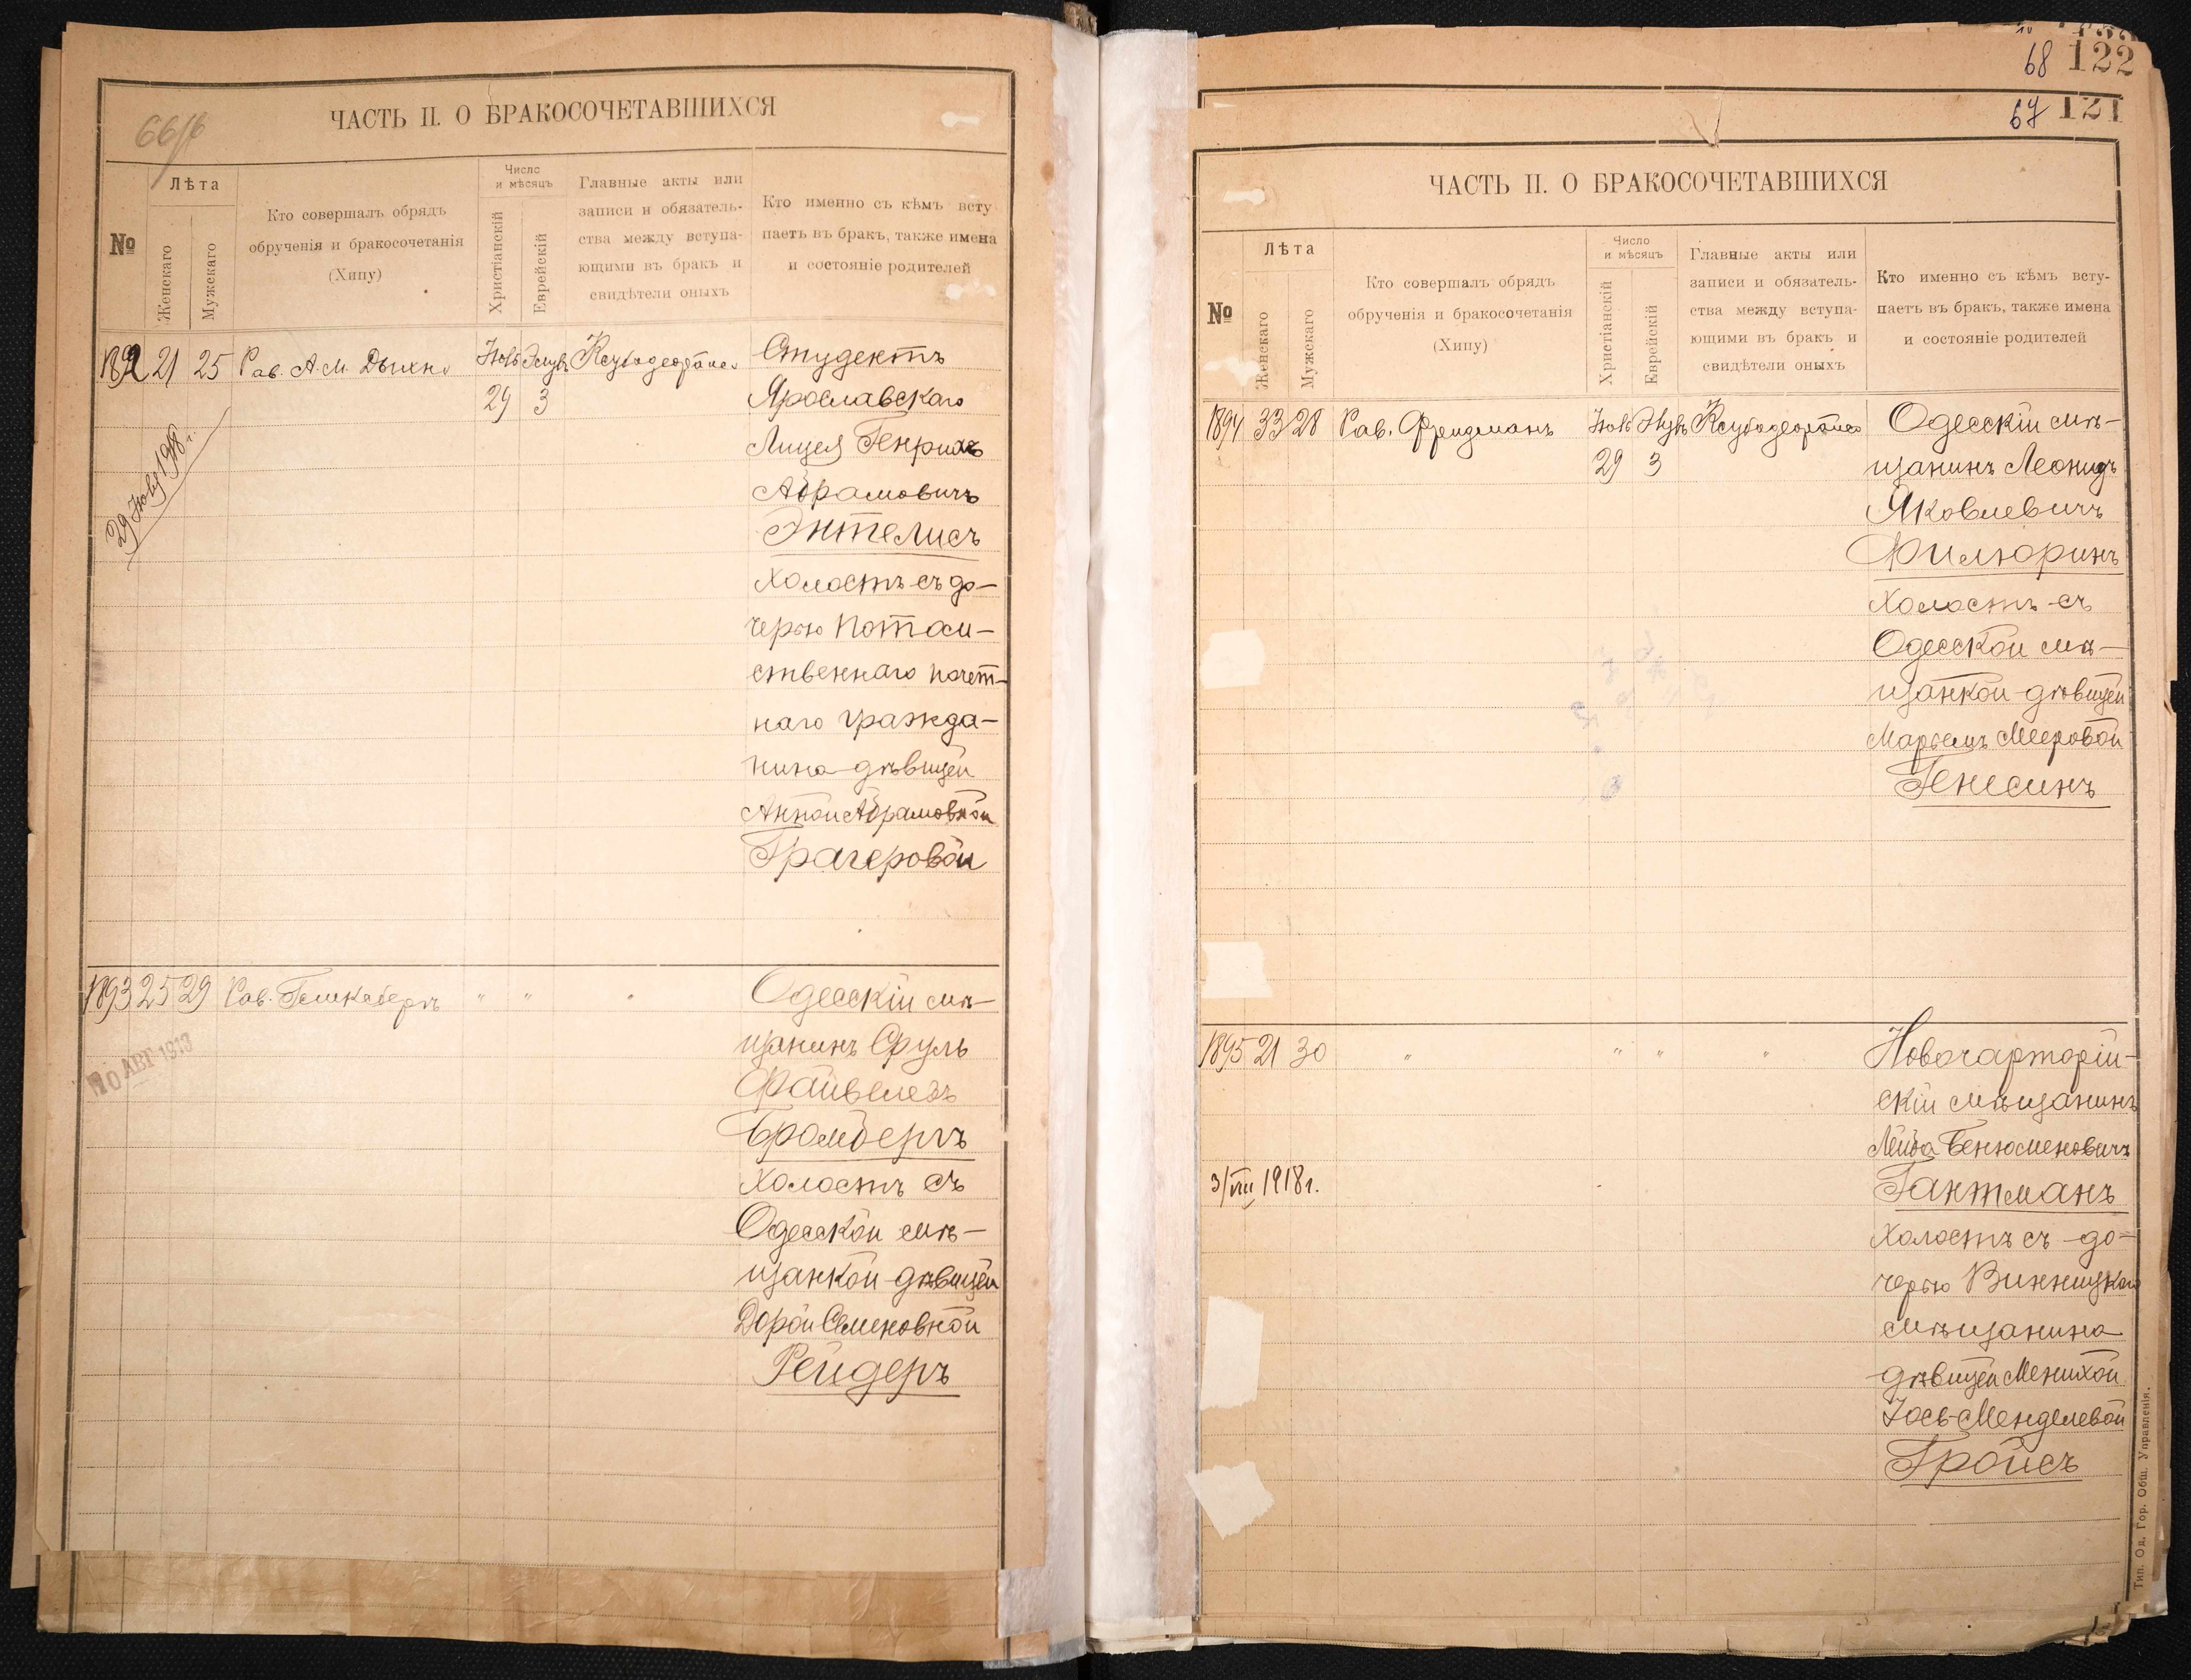 66/б
ЧАСТЬ II. О БРАКОСОЧЕТАВШИХСЯ
№
Лѣта
Женскаго
Мужскаго
Кто совершалъ обрядъ
обрученія и бракосочетанія
(Хипу)
Число
и мѣсяцъ
Христіанскій
Еврейскій
Главные акты или
записи и обязатель-
ства между вступа-
ющими въ бракъ и
свидѣтели оныхъ
Кто именно съ кѣмъ всту
паетъ въ бракъ, также имена
и состояніе родителей
1892 21 25 Рав. А. М. Дыхно
29 3
Студентъ
Ярославскаго
Лицея Генрихъ
Абрамовичъ
Энтелисъ
холостъ съ до-
черью потом-
ственнаго почет-
наго гражда-
нина дѣвицей
Анной Абрамовной
Трагеровой
1893 25 29 Рав. " " "
10 АВГ 1913
Одесскій мѣ-
щанинъ Сруль
Файвелевъ
Бромбергъ
холостъ съ
Одесской мѣ-
щанкой дѣвицей
Дорой Семеновной
Рейдеръ
68 122
67 121
ЧАСТЬ II. О БРАКОСОЧЕТАВШИХСЯ
№
Лѣта
Женскаго
Мужскаго
Кто совершалъ обрядъ
обрученія и бракосочетанія
(Хипу)
Число
и мѣсяцъ
Христіанскій
Еврейскій
Главные акты или
записи и обязатель-
ства между вступа-
ющими въ бракъ и
свидѣтели оныхъ
Кто именно съ кѣмъ всту-
паетъ въ бракъ, также имена
и состояніе родителей
1894 33 28 Рав. Фридманъ
29 3
Одесскій мѣ-
щанинъ Леонидъ
Яковлевичъ
Филюринъ
холостъ съ
Одесской мѣ-
щанкой дѣвицей
Мееровой
Генесинъ
1895 21 30 " " " "
3/VIII 1918 г.
Новочарторій-
скій мѣщанинъ
Лейба Бенюменовичъ
Гантманъ
холостъ съ до-
черью Винницкаго
мѣщанина
дѣвицей Менихой
Іось-Менделевой
Тройсъ
Тип. Од. Гор. Общ. Управленія.